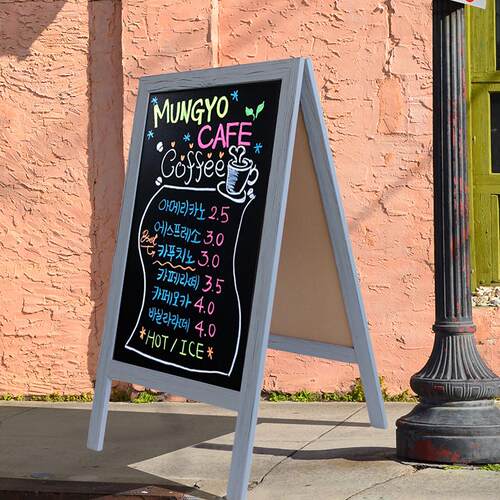 MUNGYO
CAFE
Coffee
아메리카노 2.5
에스프레소 3.0
Best
카푸치노 3.0
카페라떼 3.5
카페모카 4.0
바닐라라떼 4.0
*HOT / ICE*